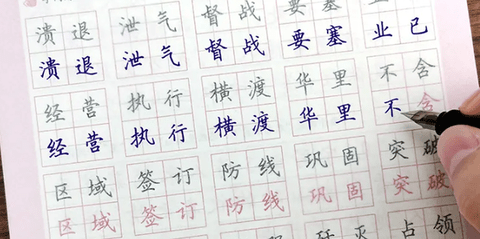 溃退 泄气 督战 要塞 业已
溃退 泄气 督战 要塞 业已
经营 执行 横渡 华里 不含
经营 执行 横渡 华里 不含
区域 签订 防线 巩固 突破
区域 签订 防线 巩固 突破
歼灭 占领